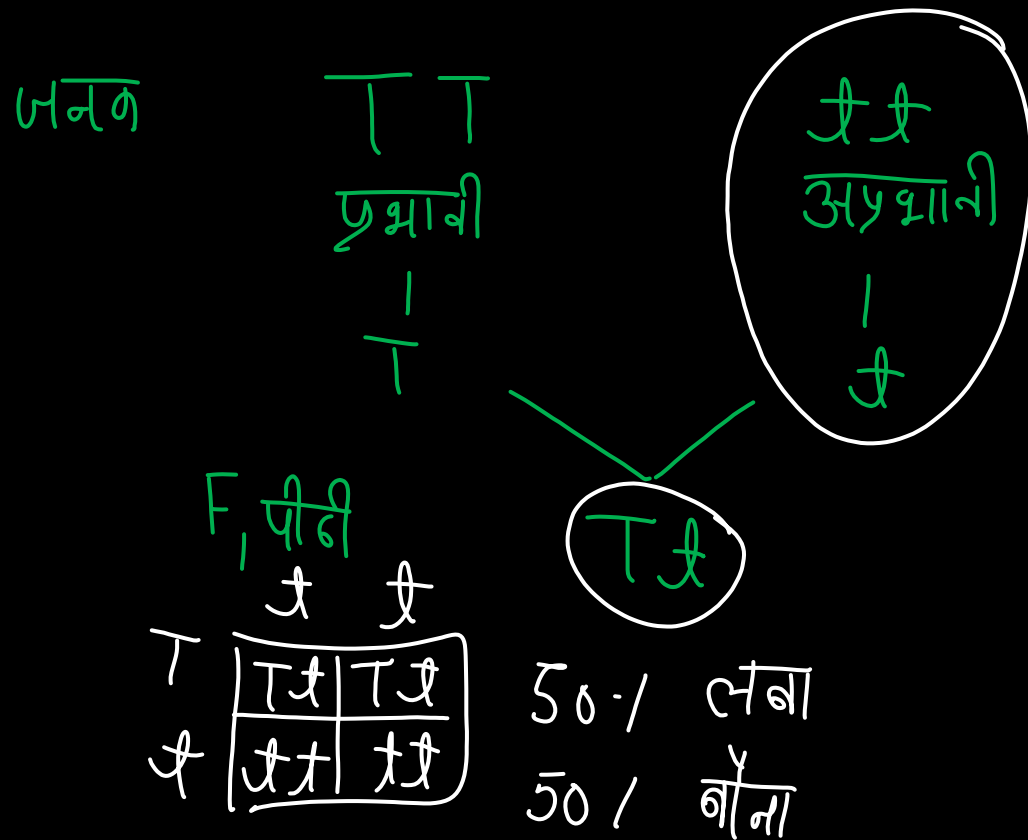 जनक TT tt
प्रभावी अप्रभावी
T t
F1 पीढी
Tt
t t
T Tt Tt
t tt tt
50% लंबा
50% बौना